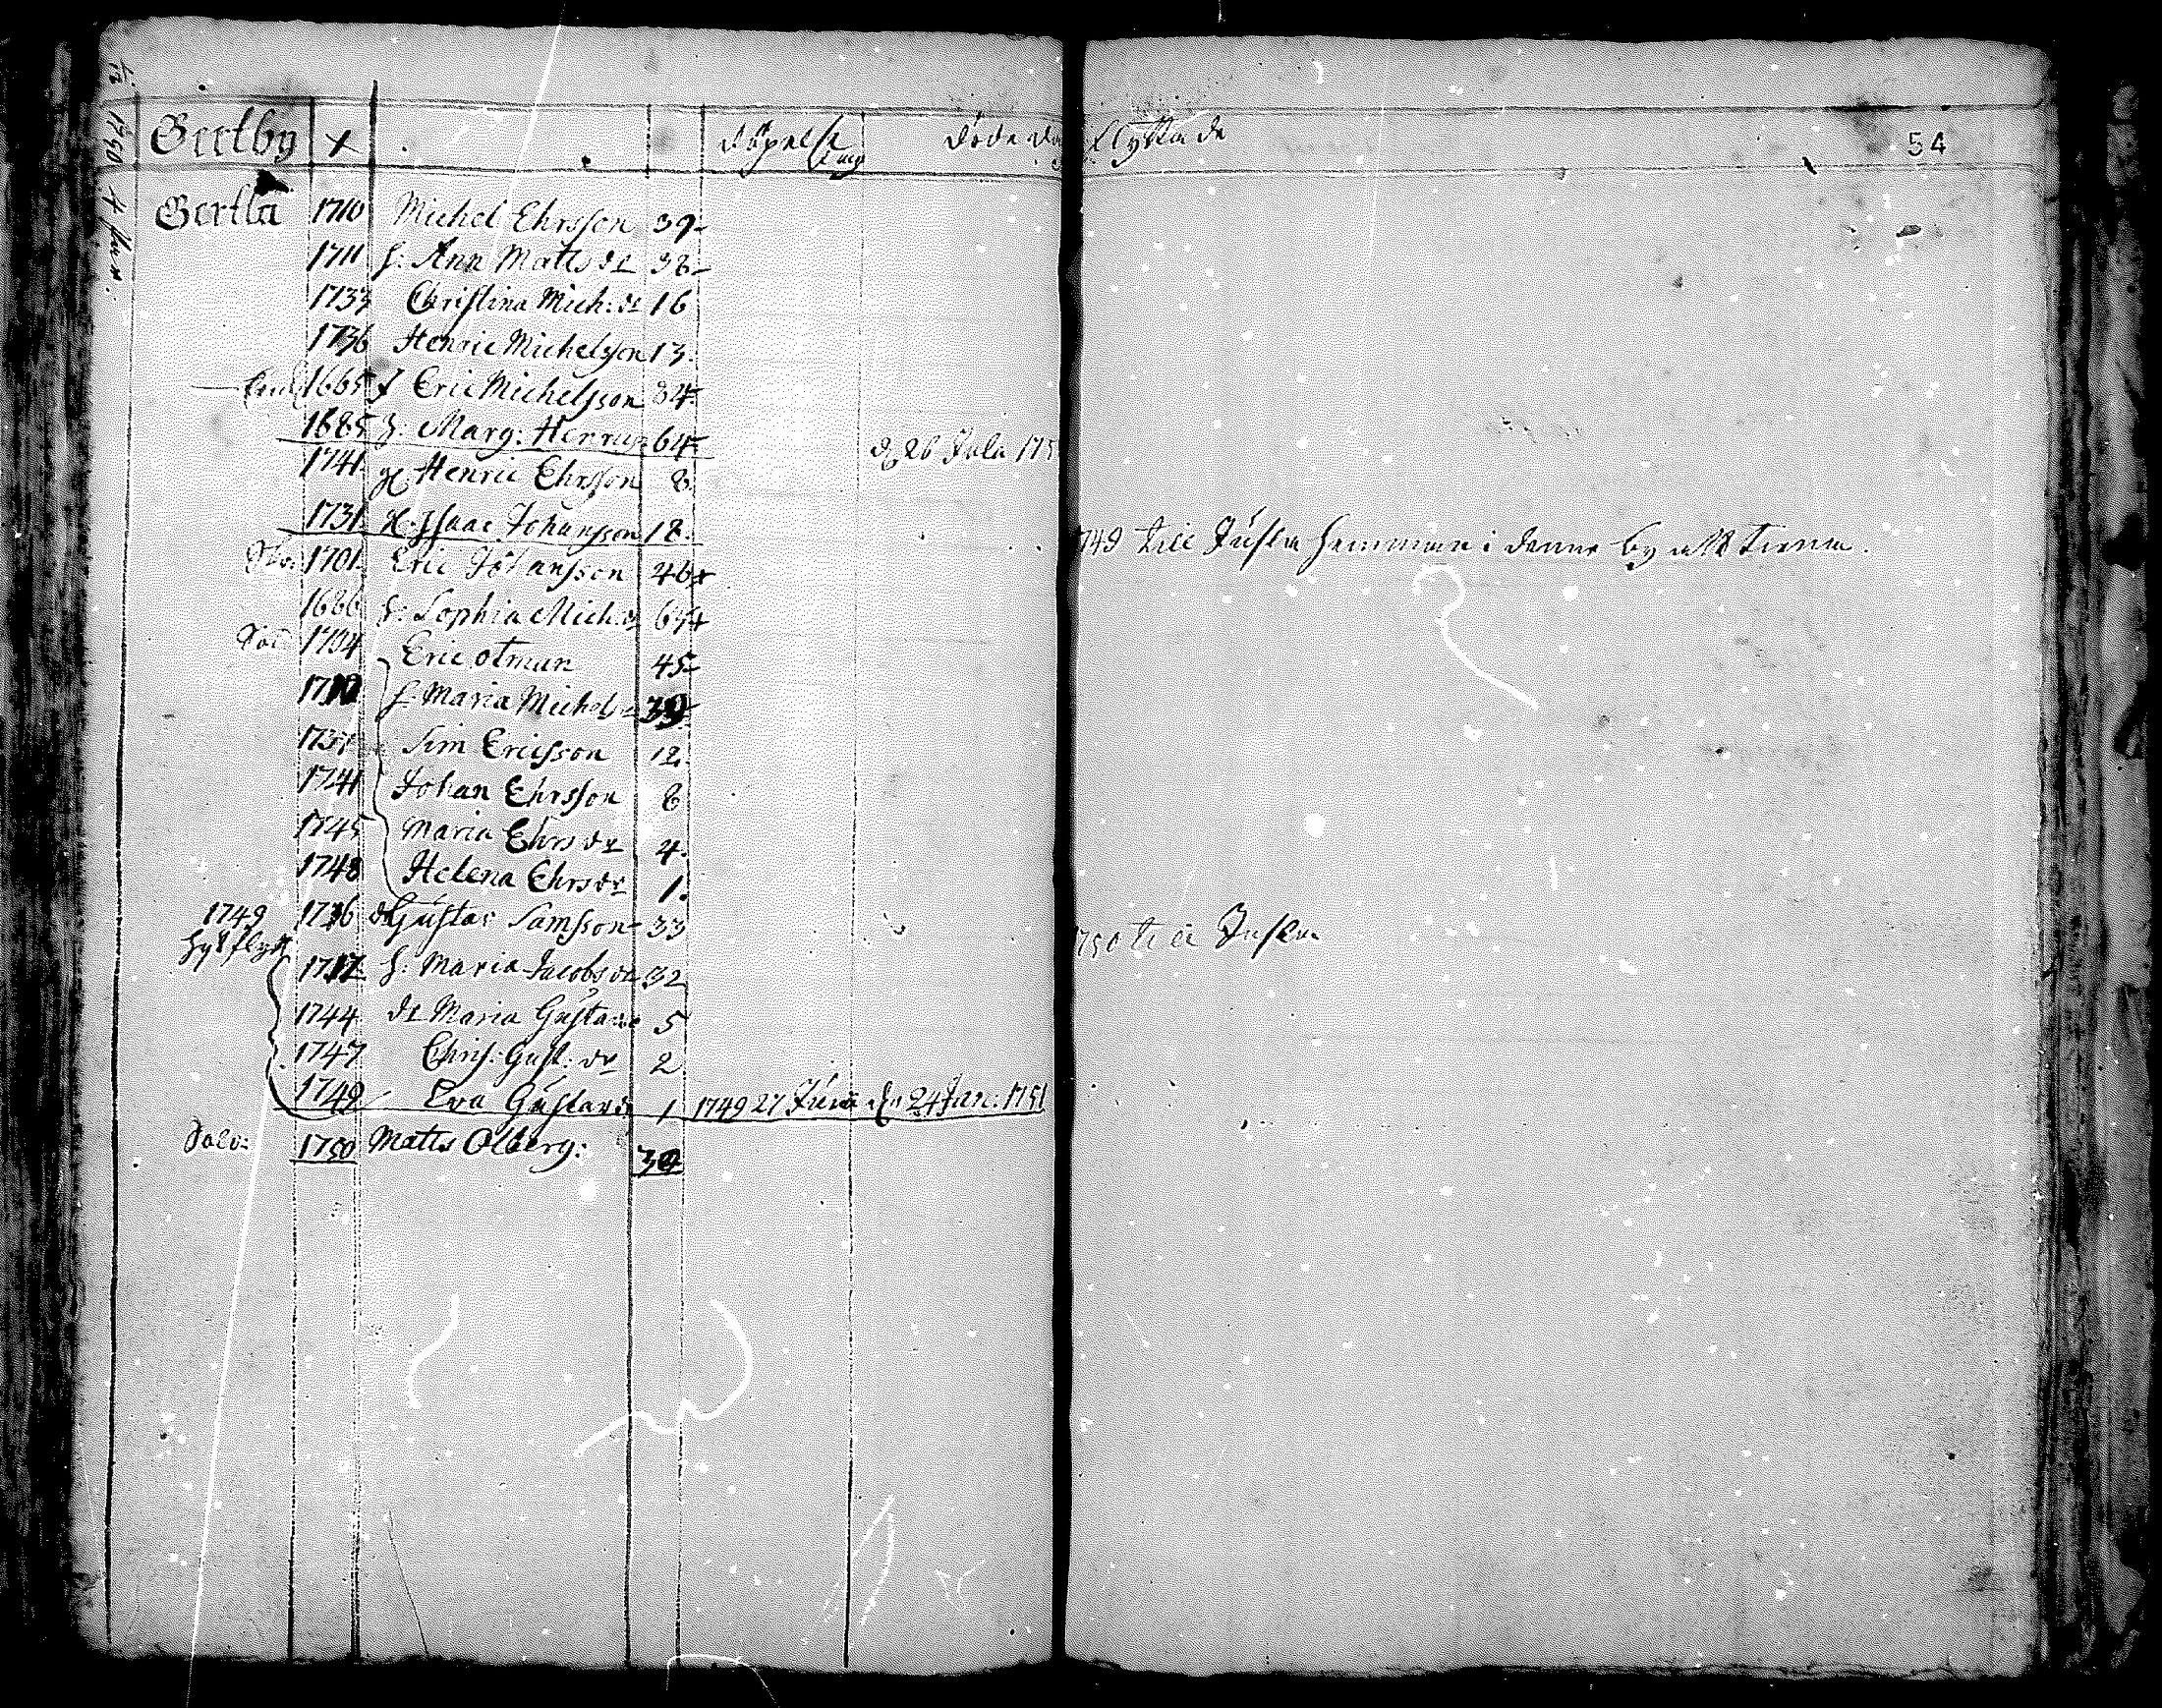 Gertby + döpelse dag döde dag flyttade 54
1750
Gertla 1710 Michel Ehrsson 39
1711 h: Ann Mattsdr 38
1733 Christina Mich: dr 16
1736 Henric Michelsson 13.
1665 f Eric Michelsson 84
1685 h. Marg: Henr 64
d. 26 Julii 175
1741 Henric Ehrsson 8
1731 Isaac Johansson 18.
749 till Jusla hemman i denne by att tiena.
1701 Eric Johansson 48
1686 h: Sophia Mich: dr 64
1704 Eric otman 45
1710 h. Maria Michels 39
1737 Sim Ericsson 12.
1741 Johan Ehrsson 8
1745 Maria Ehrsdr 4.
1748 Helena Ehrsdr 1.
1749 1716 Gustav Samsson 33
750 till Jusla
1717 h: Maria Jacobsdr 32
1744 dr Maria Gustavs 5
1747 Chris: Gust: dr 2
1749 Eva Gustavs 1 1749 27 Junii d. 24 Jan: 1751
1750 Matts Olberg: